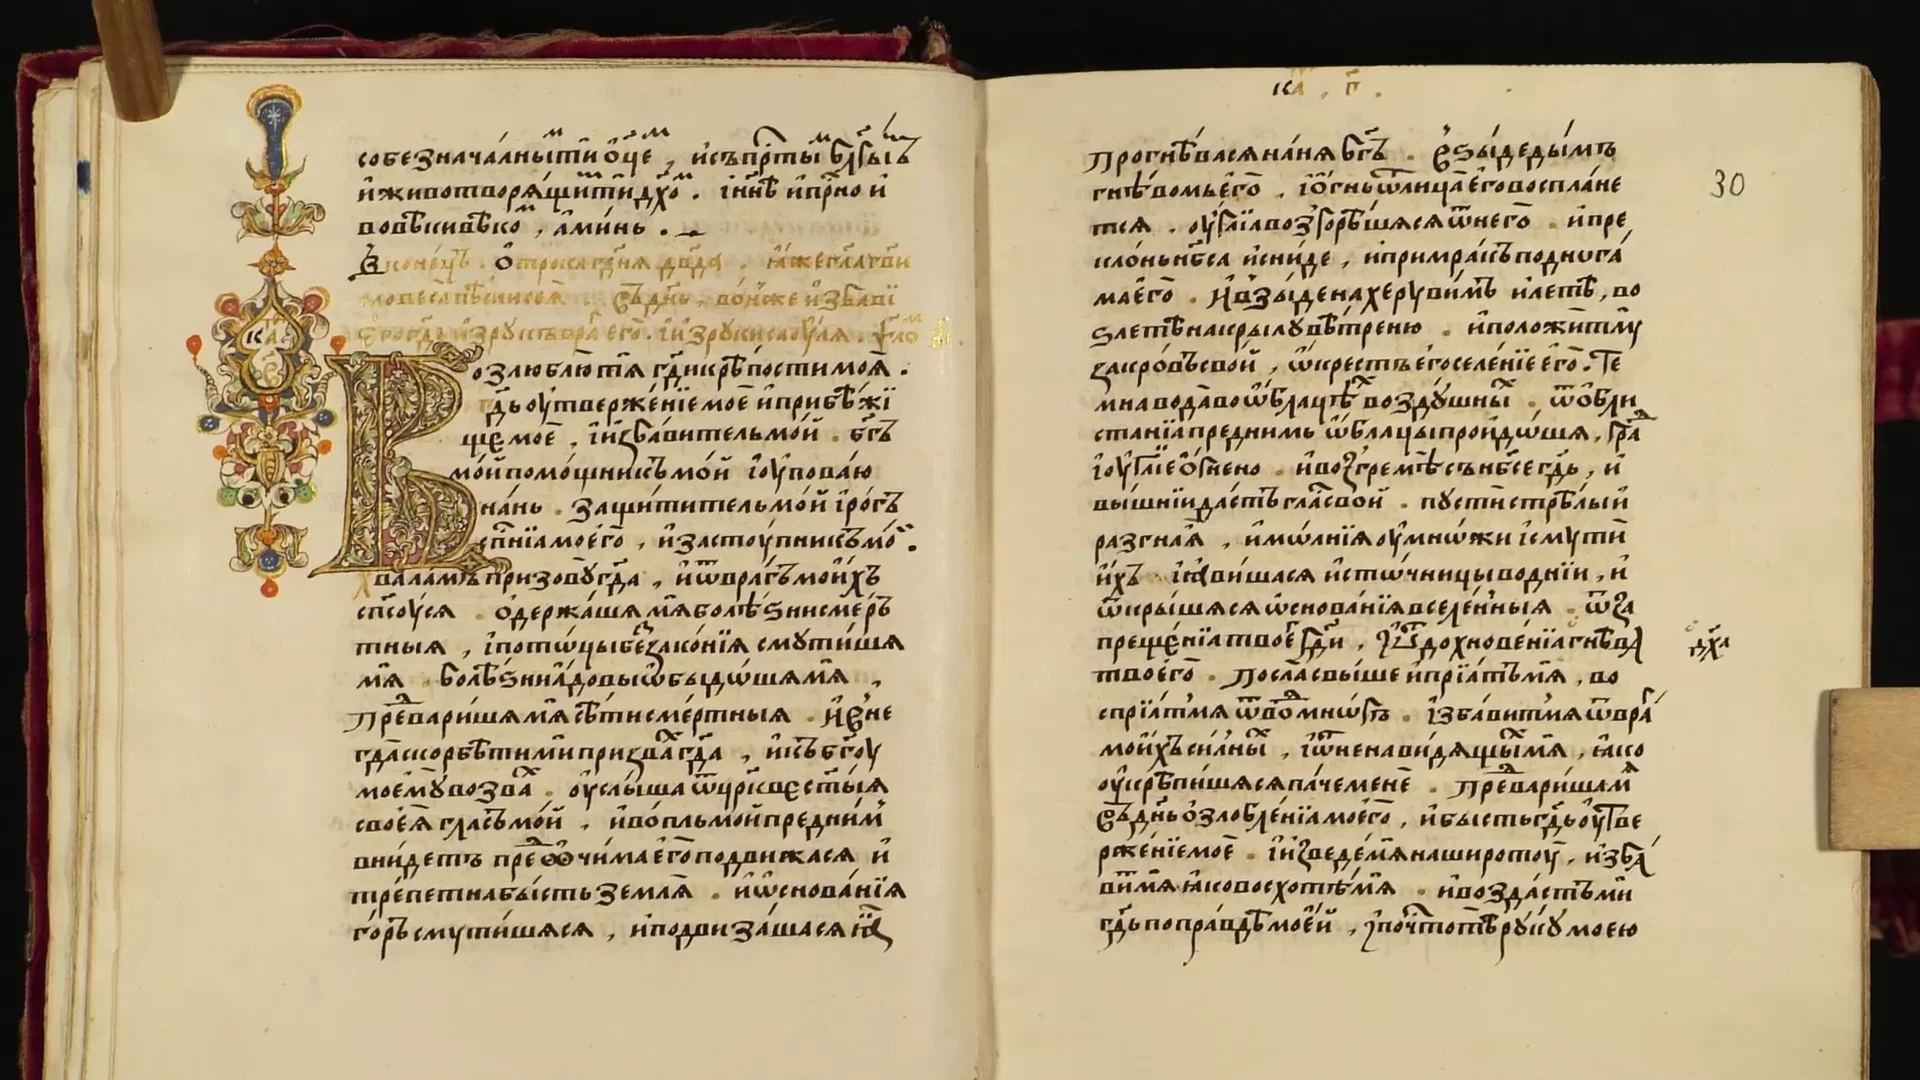 собезнача́лнымъ ти ѻ҆ц҃е́мъ , и҆съ прⷭ҇ты́мъ бл҃ги́мъ
и҆ животворѧ́щимъ ти дх҃омъ . і҆ ны́нѣ и҆ прⷭ҇но и҆
во вѣ́ки вѣко́мъ , а҆ми́нь .
В коне́цъ . Ѻ҆трока гдⷭ҇нѧ дв҃да . ꙗ҆́же гл҃а гдⷭ҇ви
словеса̀ пѣ́сни сеѧ̀ . въ де́нь , во́ньже и҆зба́ви
є҆го̀ гдⷭ҇ь из рꙋкъ вра̑гъ є҆гѡ̀ . і҆ и҆з рꙋкѝ саѹ́лѧ .
ка
Возлюблю́ тѧ гдⷭ҇и крѣ́пости моѧ̀ .
гдⷭ҇ь ѹ҆твержé нїе моѐ и҆ прибѣ́жи
ще моѐ , і҆ и҆зба́витель мо́й . бг҃ъ
мо́й помо́щникъ мо́й і҆ ѹ҆пова́ю
на́нь . защи́титель мо́й і҆ ро́гъ
сп҃нїѧ моегѡ̀ , и҆ застѹ́пникъ мо́й .
хвала̀мъ призовꙋ̀ гдⷭ҇а , и҆ ѿ вра̑гъ мои́хъ
сп҃сѹ́сѧ . ѻ҆держа́шѧ мѧ̀ болѣ́ѕни смéр
тныѧ , і҆ пото́цы беззако́нїѧ смѧти́шѧ
мѧ̀ . болѣ́ѕни а҆́довы ѡ҆быдѡ́шѧ мѧ̀ ,
предвари́шѧ мѧ̀ сѣ́ти смéртныѧ . И҆ внѐ
гда̀ скорбѣ́ти ми призва́хъ гдⷭ҇а , и҆ къ бг҃ѹ
моемꙋ̀ возва́хъ . ѹ҆слы́ша ѿ цр҃кве ст҃ы́ѧ
своеѧ̀ гла́съ мо́й , и҆ во́пль мо́й пред ни́мъ
вни́детъ пред ѻ҆́чи ма є҆гѡ̀ подви́жасѧ и҆
трéпетна бы́сть землѧ̀ . и҆ ѡ҆снова́нїѧ
го́ръ смꙋти́шѧсѧ , и҆ подвиза́шасѧ ꙗ҆́кѡ
ка . п .
30
прогнѣ́васѧ на́нѧ бг҃ъ . Взы́де ды́мъ
гнѣ́вомъ є҆гѡ̀ , і҆ ѻ҆́гнь ѿ лица̀ є҆гѡ̀ воспла́не
тсѧ . ѹ҆́глїѧ возгорѣ́шѧсѧ ѿ негѡ̀ . и҆ пре
клóнь нб҃са̀ и҆ сни́де , и҆ примра́къ под нога́
ма є҆гѡ̀ . И҆ взы́де на херꙋви́мъ и҆ летѣ̀ , во
ѕлетѣ̀ на крылꙋ̀ вѣ́треню . и҆ положѝ тмꙋ̀
за кро́въ сво́й , ѡ҆́крестъ є҆гѡ̀ селéнїе є҆гѡ̀ . Те
мна вода̀ во ѡ҆́блацѣхъ воздꙋ́шныхъ . ѿ ѻ҆бли
ста́нїѧ пред ни́мъ ѡ҆́блацы проидѡ́шѧ , гра́дъ
і҆ ѹ҆́глїе ѻ҆́гнено . и҆ возгремѣ̀ съ нб҃сѐ гдⷭ҇ь , и҆
вы́шнїи да́стъ гла́съ сво́й . пꙋстѝ стрѣ́лы и҆
разгна̀ ѧ҆̀ , и҆ мѡ́лнїѧ ѹ҆мнѡ́жи і҆ смꙋтѝ
и҆́хъ . і҆ ꙗ҆ви́шасѧ и҆стѡ́чницы водні́и , и҆
ѿкры́шѧсѧ ѡ҆снова́нїѧ вселéнныѧ . ѿ за
прещéнїѧ твоегѡ̀ гдⷭ҇и , і҆ ѿ дохновéнїѧ гнѣ́ва
дх҃а
твоегѡ̀ . Посла̀ свы́ше и҆ прїѧ́тъ мѧ̀ , во
спрїѧ́т мѧ ѿ во́дъ мнѡ́гъ . і҆зба́вит мѧ ѿ вра̑гъ
мои́хъ си́лныхъ , і҆ ѿ ненави́дѧщыхъ мѧ̀ , ꙗ҆́ко
ѹ҆крѣпи́шѧсѧ па́че менѐ . Предвари́ша мѧ̀
въ де́нь ѻ҆злоблéнїѧ моегѡ̀ , и҆ бы́сть гдⷭ҇ь ѹ҆тве
ржéнїе моѐ . і҆ и҆зведé мѧ на широтѹ̀ , и҆зба́
ви мѧ ꙗ҆́ко восхотѣ́ мѧ . и҆ возда́стъ мѝ
гдⷭ҇ь по пра́вдѣ моéй , і҆ по чⷭ҇тотѣ̀ рꙋкꙋ̀ моею